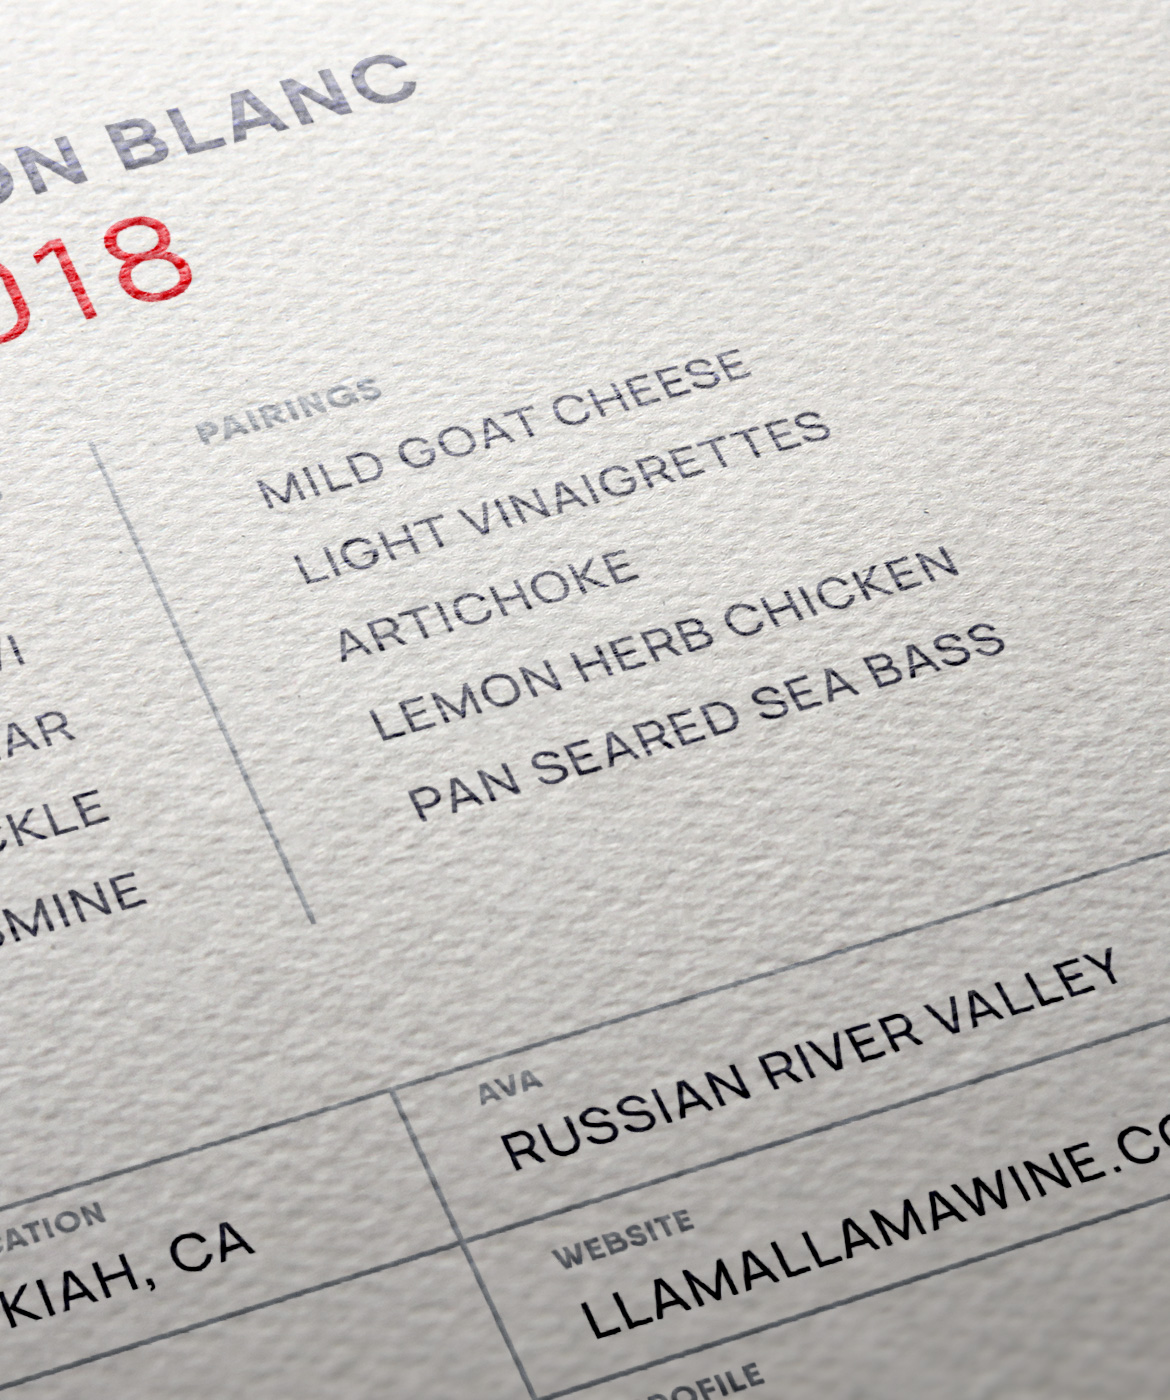 ON BLANC
018
PAIRINGS
MILD GOAT CHEESE
LIGHT VINAIGRETTES
ARTICHOKE
LEMON HERB CHICKEN
PAN SEARED SEA BASS
VI
AR
CKLE
SMINE
AVA
RUSSIAN RIVER VALLEY
CATION
KIAH, CA
WEBSITE
LLAMALLAMAWINE.CO
OFILE